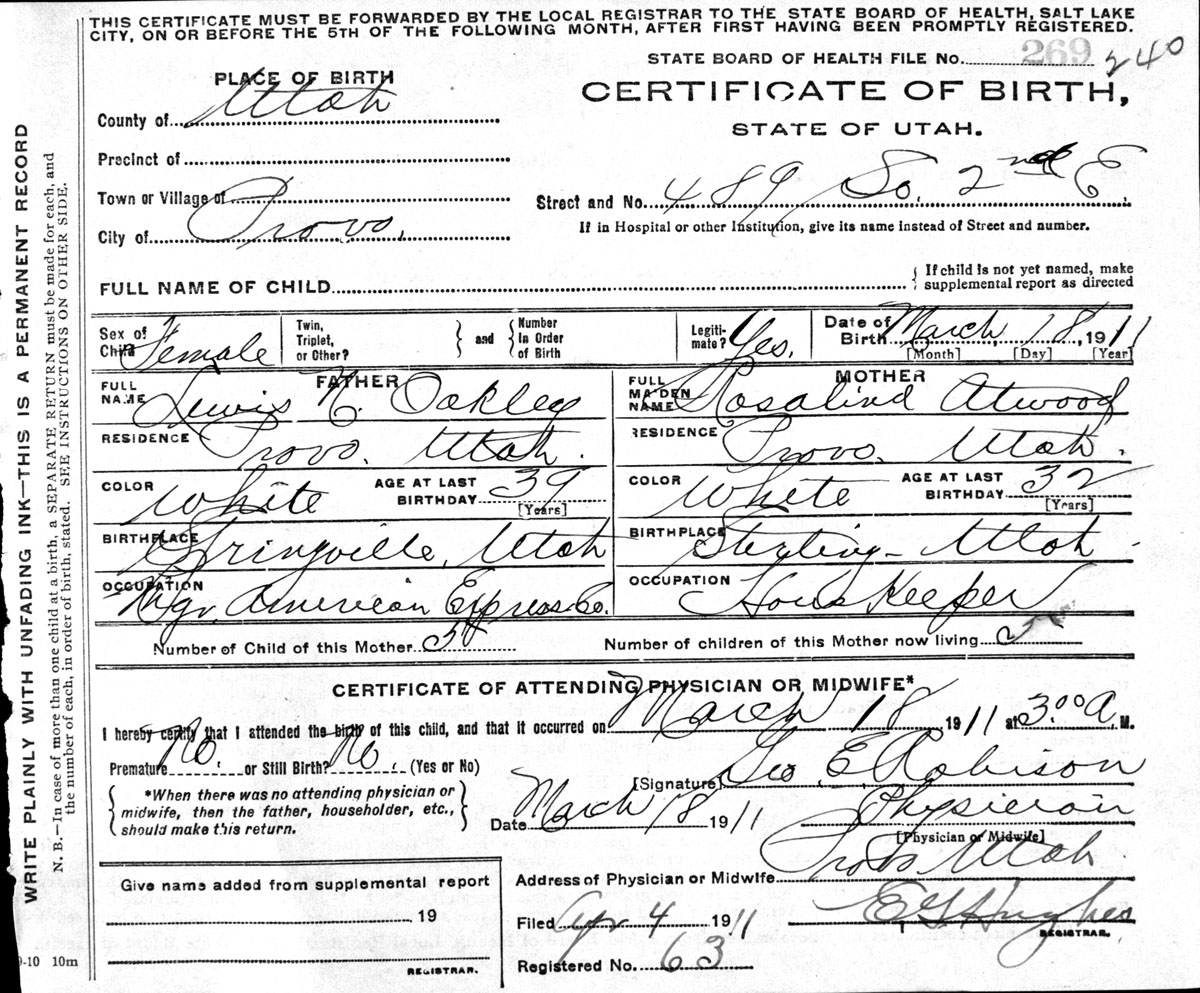 THIS CERTIFICATE MUST BE FORWARDED BY THE LOCAL REGISTRAR TO THE STATE BOARD OF HEALTH, SALT LAKE
CITY, ON OR BEFORE THE 5TH OF THE FOLLOWING MONTH, AFTER FIRST HAVING BEEN PROMPTLY REGISTERED.
WRITE PLAINLY WITH UNFADING INK—THIS IS A PERMANENT RECORD
N. B.—In case of more than one child at a birth, a SEPARATE RETURN must be made for each, and
the number of each, in order of birth, stated. SEE INSTRUCTIONS ON OTHER SIDE.
STATE BOARD OF HEALTH FILE No. 269 240
PLACE OF BIRTH
CERTIFICATE OF BIRTH,
STATE OF UTAH.
County of Utah
Precinct of
Town or Village of
City of Provo.
Street and No. 489 So. 2nd E.
If in Hospital or other Institution, give its name instead of Street and number.
FULL NAME OF CHILD
If child is not yet named, make
supplemental report as directed
Sex of Child Female
Twin, Triplet, or Other?
and
Number In Order of Birth
Legiti-mate? Yes.
Date of Birth March, 18, 1911
[Month] [Day] [Year]
FATHER
MOTHER
FULL NAME Lewis N. Oakley
FULL MAIDEN NAME Rosalind Atwood
RESIDENCE Provo. Utah.
RESIDENCE Provo. Utah.
COLOR White AGE AT LAST BIRTHDAY 39 [Years]
COLOR White AGE AT LAST BIRTHDAY 32 [Years]
BIRTHPLACE Springville, Utah
BIRTHPLACE Sterling - Utah.
OCCUPATION Mgr. American Express. Co.
OCCUPATION House Keeper
Number of Child of this Mother 5
Number of children of this Mother now living 5
CERTIFICATE OF ATTENDING PHYSICIAN OR MIDWIFE*
I hereby certify that I attended the birth of this child, and that it occurred on March 18 1911 at 3.00 A. M.
Premature No. or Still Birth? No. (Yes or No)
[Signature] Geo. E Robison
*When there was no attending physician or
midwife, then the father, householder, etc.,
should make this return.
Date March 18 1911
Physician
[Physician or Midwife]
Give name added from supplemental report
19
REGISTRAR.
Address of Physician or Midwife Provo Utah.
Filed Apr 4 1911 E G Hughes
REGISTRAR.
Registered No. 63
9-10 10m